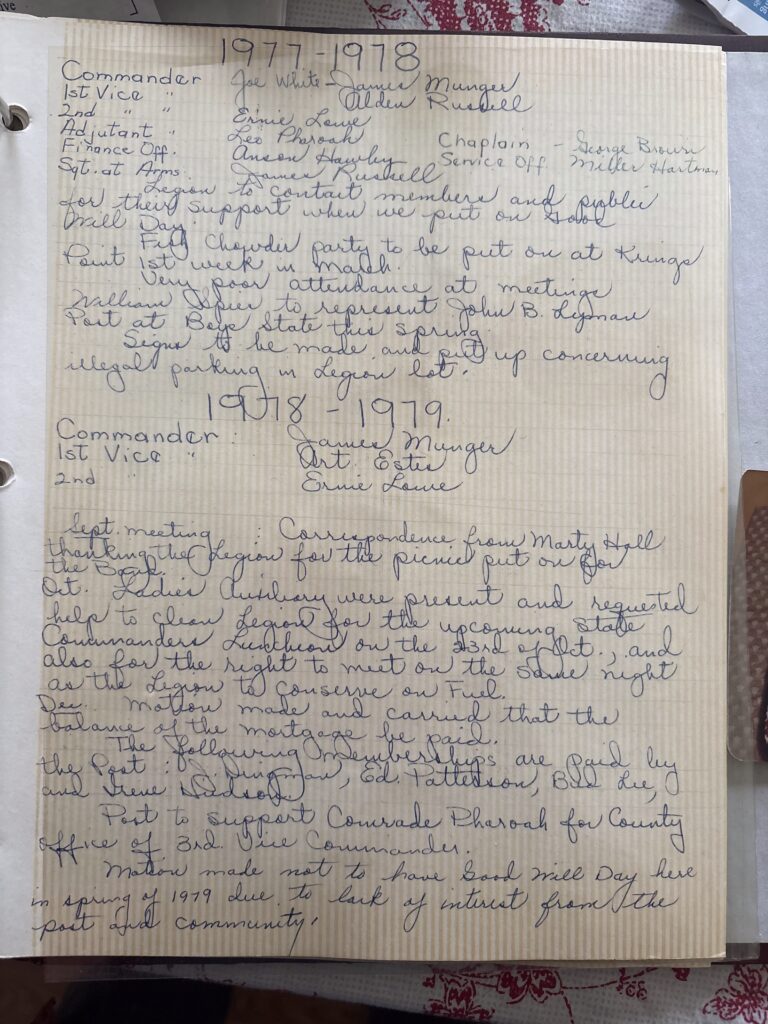 1977-1978
Commander Joe White - James Munger
1st Vice " Alden Russell
2nd " " Ernie Lowe
Adjutant " Leo Pharoah Chaplain - George Brown
Finance Off. Anson Hawley Service Off. Miller Hartman
Sgt. at Arms. James Russell
Legion to contact members and public
for their support when we put on Good
Will Day.
Fish Chowder party to be put on at Krings
Point 1st week in March.
Very poor attendance at meetings
William Spier to represent John B. Lyman
Post at Boys State this spring.
Signs to be made and put up concerning
illegal parking in Legion lot.
1978 - 1979.
Commander : James Munger
1st Vice " Art. Estes
2nd " Ernie Lowe
Sept. meeting : Correspondence from Marty Hall
thanking the Legion for the picnic put on for
the Band.
Oct. Ladies Auxiliary were present and requested
help to clean Legion for the upcoming State
Commanders Luncheon on the 23rd of Oct., and
also for the right to meet on the same night
as the Legion to conserve on Fuel.
Dec. Motion made and carried that the
balance of the mortgage be paid.
The following memberships are paid by
the Post : J. Dingman, Ed. Patterson, Bud Lee,
and Irene Hudson
Post to support Comrade Pharoah for County
office of 3rd. Vice Commander.
Motion made not to have Good Will Day here
in spring of 1979 due to lack of interest from the
post and community.